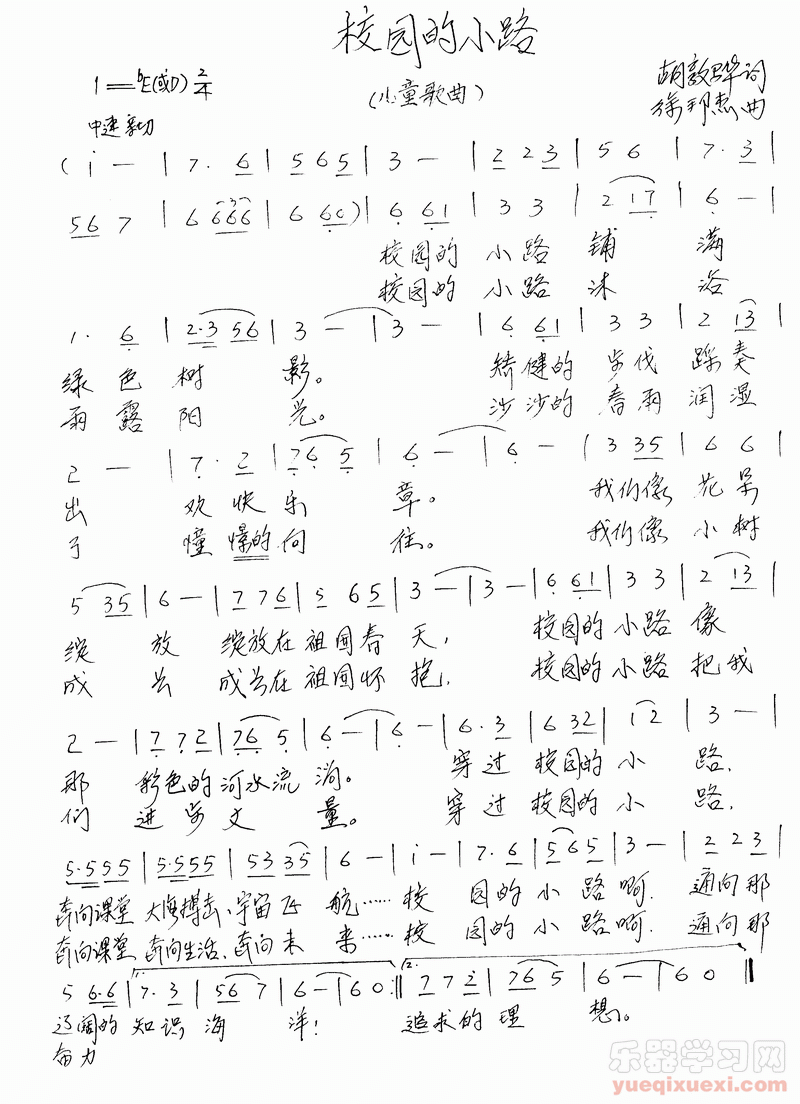 校园的小路
1=♭E(或D) 2/4
(儿童歌曲)
胡敦骅词
徐邦杰曲
中速 亲切
( i — | 7. 6 | 5 6 5 | 3 — | 2 2 3 | 5 6 | 7. 3 |
5 6 7 | 6 6 6 6 | 6 6 0 ) | 6 6 1 | 3 3 | 2 1 7 | 6 — |
校园的 小路 铺 满
校园的 小路 沐 浴
1. 6 | 2.3 5 6 | 3 — | 3 — | 6 6 1 | 3 3 | 2 1 3 |
绿色树 影。 矫健的 步伐 踩奏
雨露阳 光。 沙沙的 春雨 润湿
2 — | 7. 2 | 7 6 5 | 6 — | 6 — | 3 3 5 | 6 6 |
出 欢快乐 章。 我们像 花朵
了 憧憬的向 往。 我们像 小树
5 3 5 | 6 — | 7 7 6 | 5 6 5 | 3 — | 3 — | 6 6 1 | 3 3 | 2 1 3 |
绽 放 绽放在祖国春 天, 校园的小路 像
成 长 成长在祖国怀 抱, 校园的小路 把我
2 — | 7 7 2 | 7 6 5 | 6 — | 6 — | 6. 3 | 6 3 2 | i 2 | 3 — |
那 彩色的河水流 淌。 穿过 校园的 小 路,
们 进步丈 量。 穿过 校园的 小 路,
5.5 5 5 | 5.5 5 5 | 5 3 3 5 | 6 — | i — | 7. 6 | 5 6 5 | 3 — | 2 2 3 |
奔向课堂 大海搏击、宇宙飞 航⋯⋯校 园的小 路啊, 通向那
奔向课堂、奔向生活、奔向未 来⋯⋯校 园的小 路啊, 通向那
1. 2.
5 6.6 | 7. 3 | 5 6 7 | 6 — | 6 0 :|| 7 7 2 | 7 6 5 | 6 — | 6 0 ||
辽阔的 知识 海 洋! 追求的 理 想。
奋力
乐器学习网
yueqixuexi.com